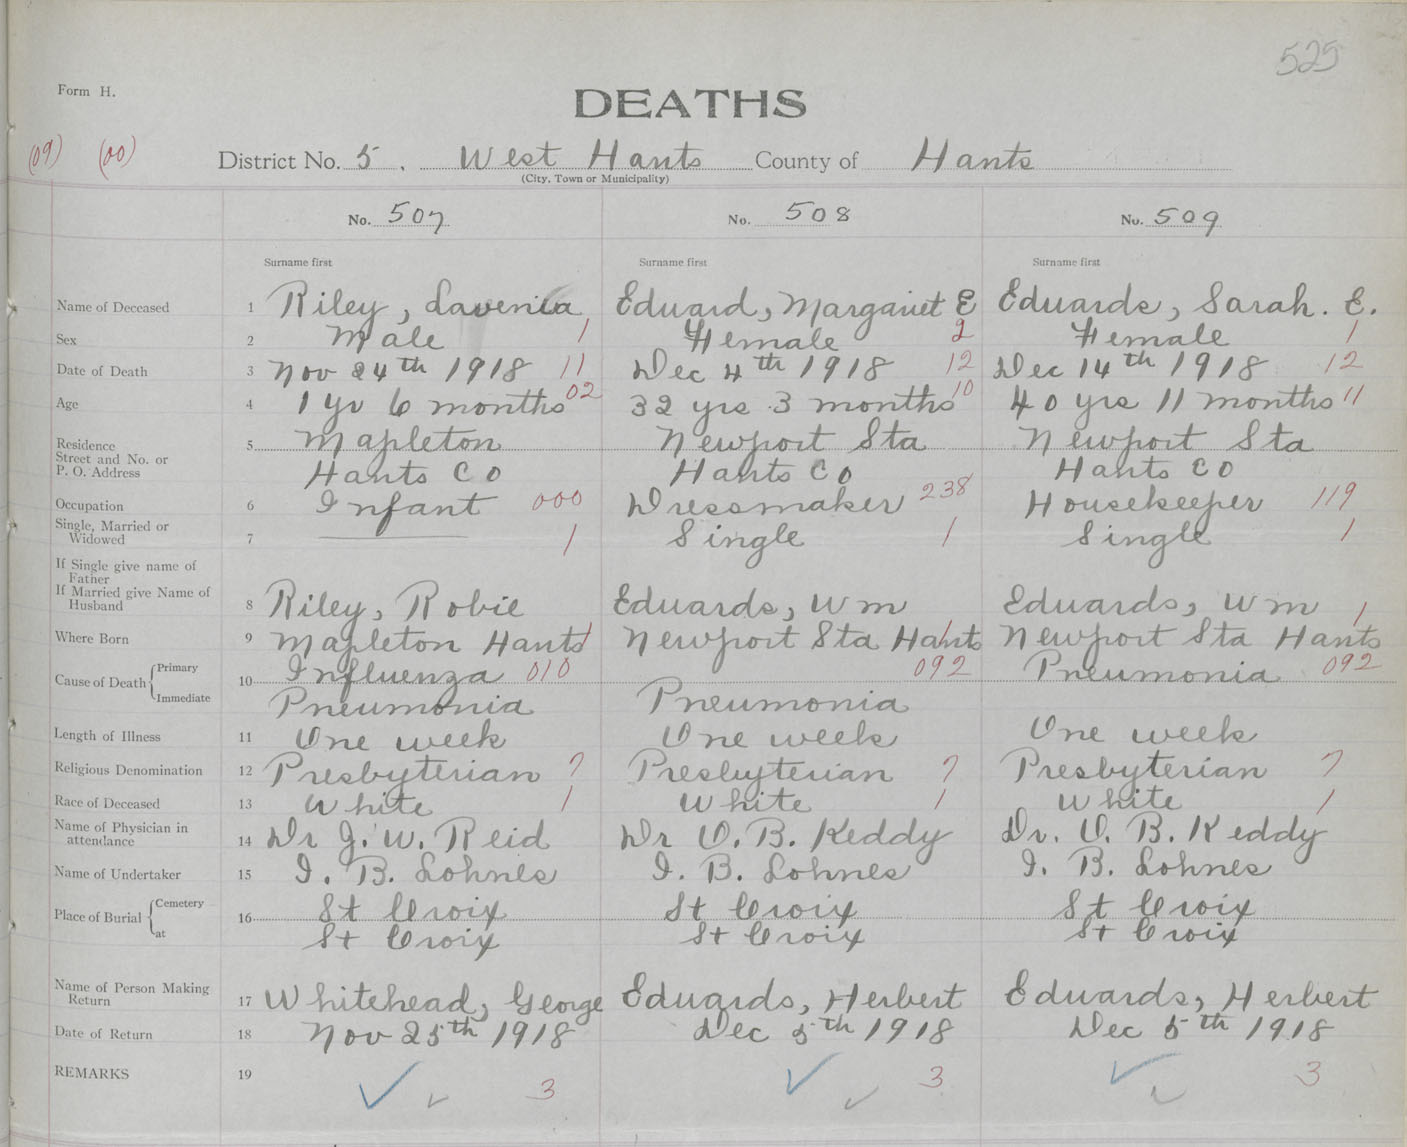 525
Form H.
DEATHS
(09) (00)
District No. 5, West Hants County of Hants
(City, Town or Municipality)
No. 507 No. 508 No. 509
Surname first Surname first Surname first
Name of Deceased 1 Riley, Lavenia Eduard, Margaret E Eduards, Sarah. E.
Sex 2 Male 1 Female 2 Female 1
Date of Death 3 Nov 24th 1918 11 Dec 4th 1918 12 Dec 14th 1918 12
Age 4 1 yr 6 months 02 32 yrs 3 months 10 40 yrs 11 months 11
Residence
Street and No. or
P. O. Address
5 Mapleton Newport Sta Newport Sta
Hants Co Hants Co Hants Co
Occupation 6 Infant 000 Dressmaker 238 Housekeeper 119
Single, Married or
Widowed 7 1 Single 1 Single 1
If Single give name of
Father
If Married give Name of
Husband 8 Riley, Robie Eduards, Wm Eduards, Wm 1
Where Born 9 Mapleton Hants 1 Newport Sta Hants 1 Newport Sta Hants
Cause of Death Primary
Immediate
10 Influenza 010 092 Pneumonia 092
Pneumonia Pneumonia
Length of Illness 11 One week One week One week
Religious Denomination 12 Presbyterian 7 Presbyterian 7 Presbyterian 7
Race of Deceased 13 White 1 White 1 White 1
Name of Physician in
attendance 14 Dr J. W. Reid Dr O. B. Keddy Dr. O. B. Keddy
Name of Undertaker 15 I. B. Lohnes I. B. Lohnes I. B. Lohnes
Place of Burial Cemetery
at
16 St Croix St Croix St Croix
St Croix St Croix St Croix
Name of Person Making
Return 17 Whitehead, George Eduards, Herbert Eduards, Herbert
Date of Return 18 Nov 25th 1918 Dec 5th 1918 Dec 5th 1918
REMARKS 19 3 3 3